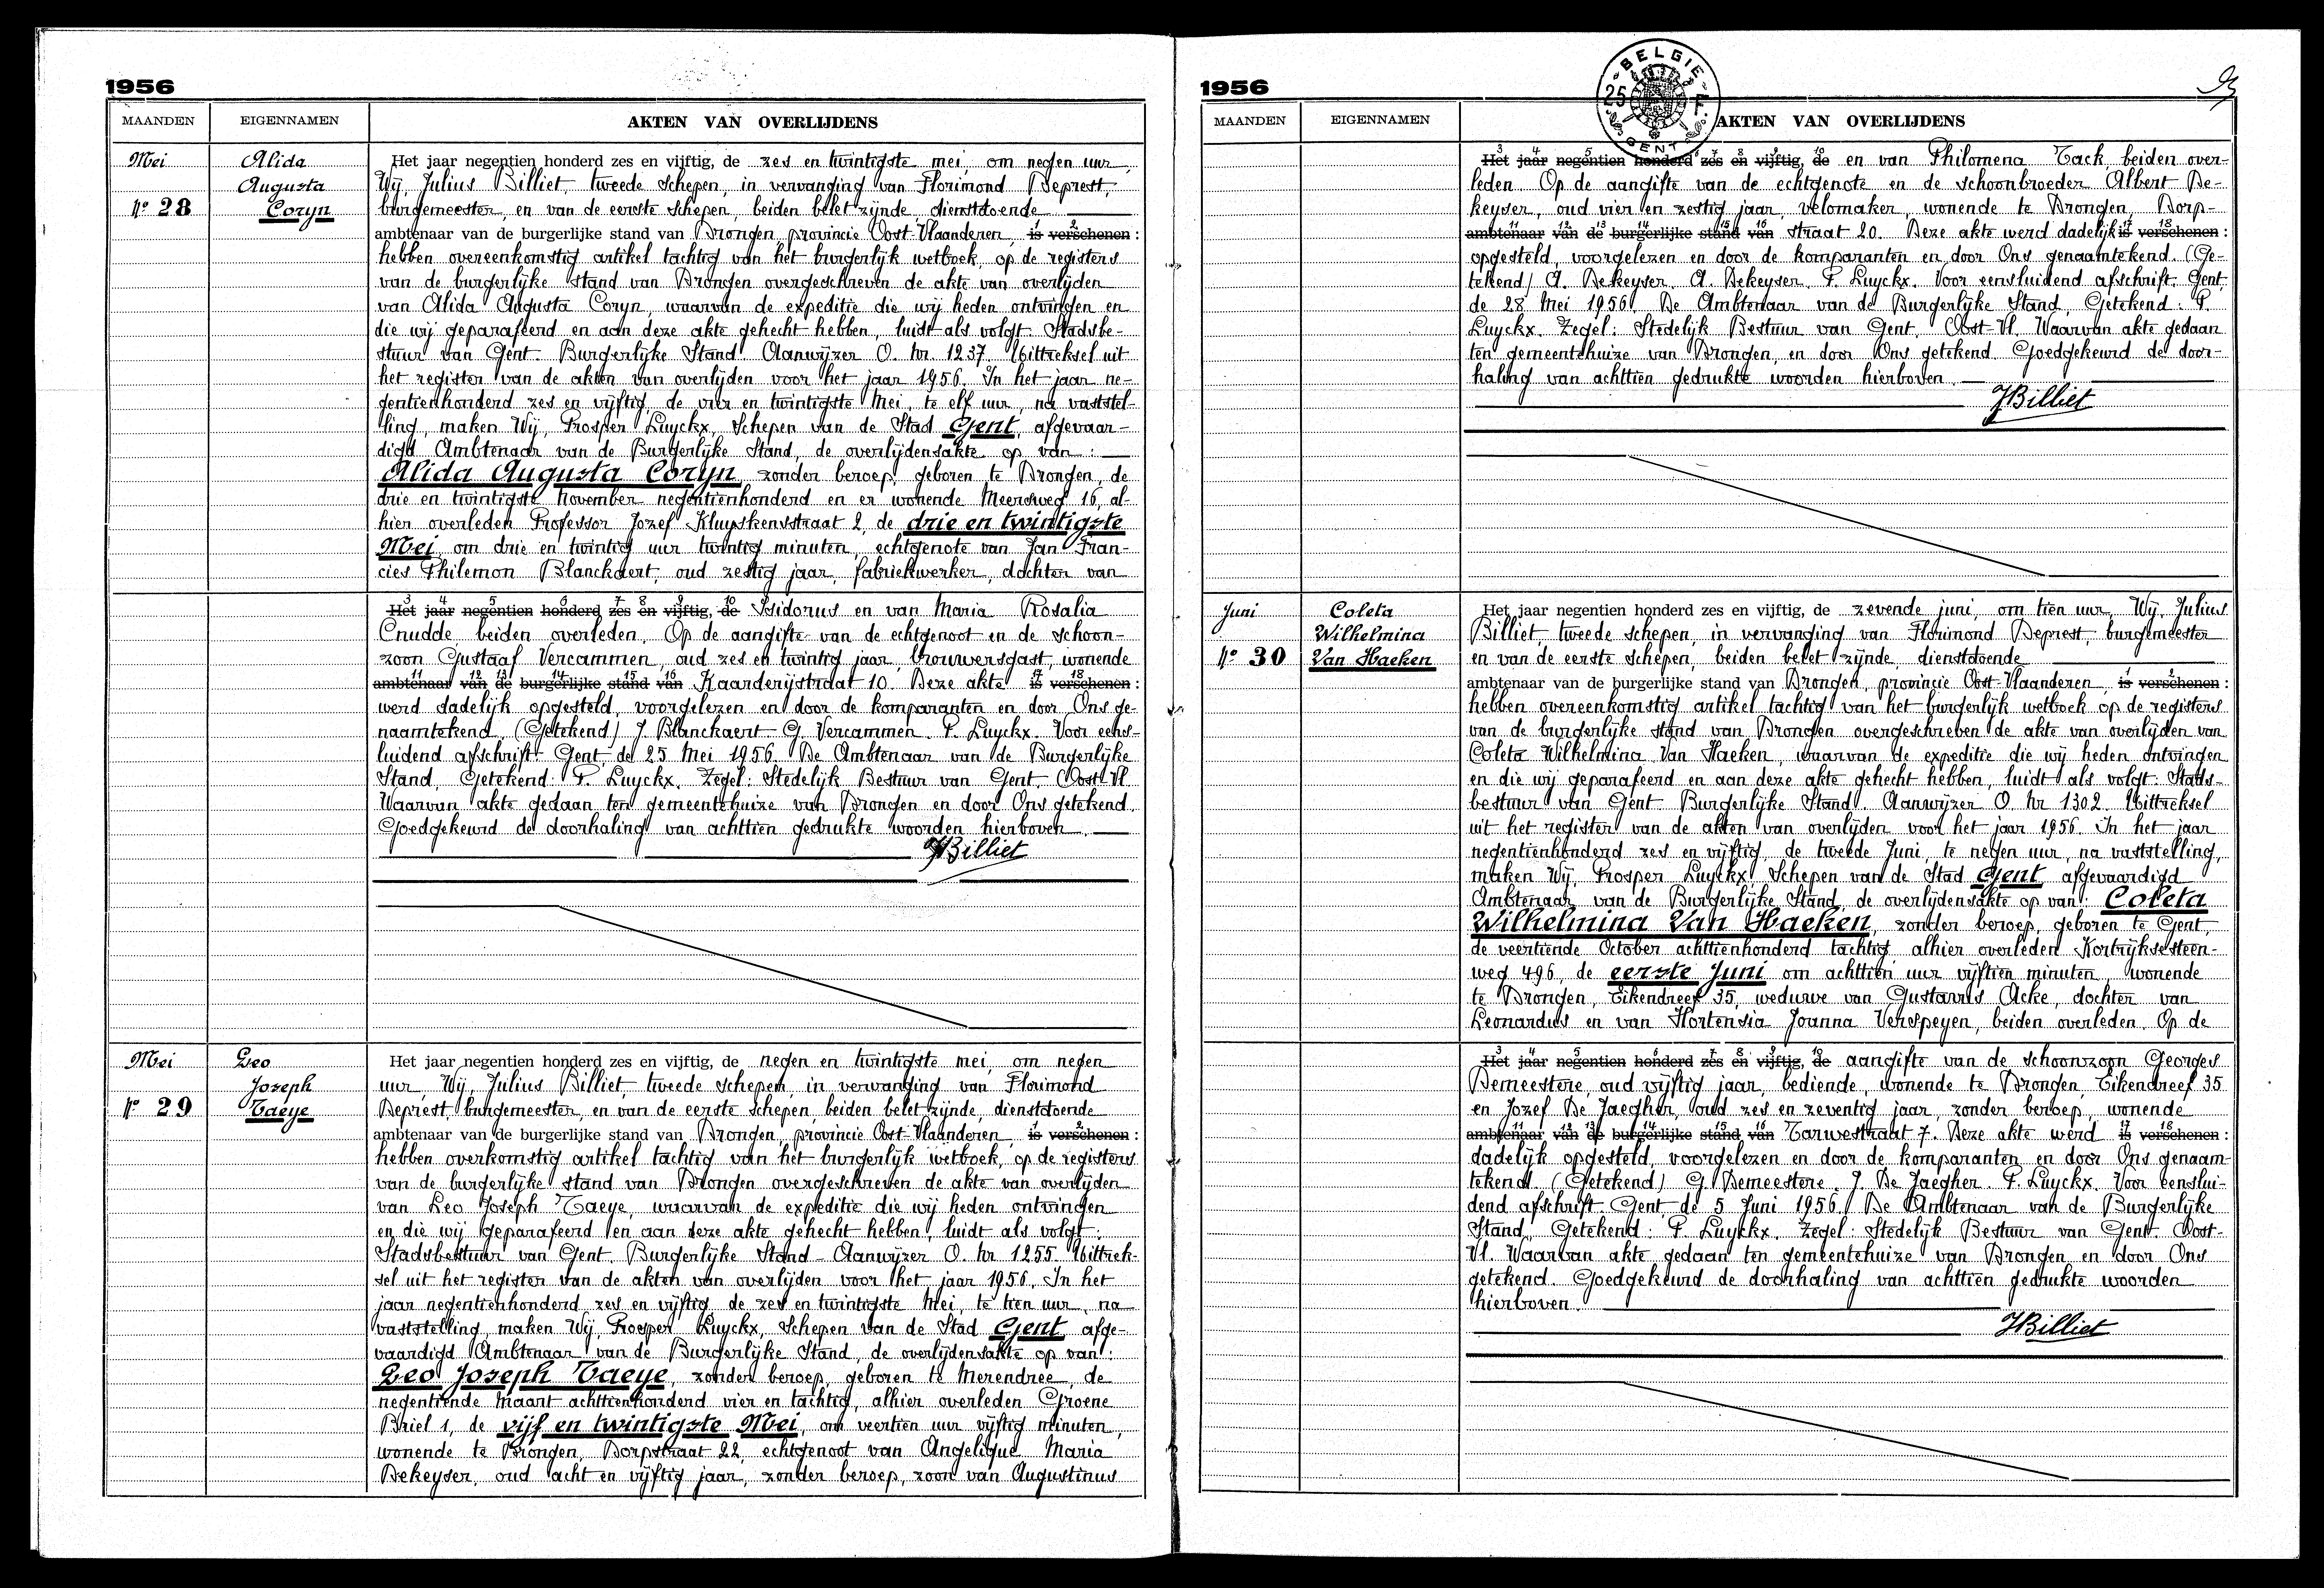 1956
MAANDEN EIGENNAMEN AKTEN VAN OVERLIJDENS
Mei Alida Het jaar negentien honderd zes en vijftig, de zes en twintigste mei, om negen uur,
Augusta Wij, Julius Billiet, tweede schepen, in vervanging van Florimond Deprest,
No 28 Coryn burgemeester, en van de eerste schepen, beiden belet zijnde, dienstdoende
ambtenaar van de burgerlijke stand van Drongen provincie Oost-Vlaanderen, 1 is 2 verschenen:
hebben overeenkomstig artikel tachtig van het burgerlijk wetboek, op de registers
van de burgerlijke stand van Drongen overgeschreven de akte van overlijden
van Alida Augusta Coryn, waarvan de expeditie die wij heden ontvingen en
die wij geparafeerd en aan deze akte gehecht hebben, luidt als volgt: Stadsbe-
stuur van Gent. Burgerlijke Stand. Aanwijzer O. nr. 1237. Uittreksel uit
het register van de akten van overlijden voor het jaar 1956. In het jaar ne-
gentienhonderd zes en vijftig, de vier en twintigste Mei, te elf uur, na vaststel-
ling, maken Wij, Prosper Luyckx, Schepen van de Stad Gent, afgevaar-
digd Ambtenaar van de Burgerlijke Stand, de overlijdensakte op van:
Alida Augusta Coryn, zonder beroep, geboren te Drongen, de
drie en twintigste November negentienhonderd en er wonende Meersweg 16, al-
hier overleden Professor Jozef Kluyskensstraat 2, de drie en twintigste
Mei, om drie en twintig uur twintig minuten, echtgenote van Jan Fran-
cies Philemon Blanckaert, oud zestig jaar, fabriekwerker, dochter van
3 Het 4 jaar 5 negentien 6 honderd 7 zes 8 en 9 vijftig, 10 de Isidorus en van Maria Rosalia
Cnudde, beiden overleden. Op de aangifte van de echtgenoot en de schoon-
zoon Gustaaf Vercammen, oud zes en twintig jaar, brouwersgast, wonende
11 ambtenaar 12 van 13 de 14 burgerlijke 15 stand 16 van Kaarderijstraat 10. Deze akte 17 is 18 verschenen:
werd dadelijk opgesteld, voorgelezen en door de komparanten en door Ons ge-
naamtekend. (Getekend) J. Blanckaert - G. Vercammen. P. Luyckx. Voor eens-
luidend afschrift. Gent, de 25 Mei 1956. De Ambtenaar van de Burgerlijke
Stand, Getekend: P. Luyckx. Zegel: Stedelijk Bestuur van Gent. Oost-Vl.
Waarvan akte gedaan ten gemeentehuize van Drongen en door Ons getekend.
Goedgekeurd de doorhaling van achttien gedrukte woorden hierboven.
JBilliet
Mei Leo Het jaar negentien honderd zes en vijftig, de negen en twintigste mei, om negen
Joseph uur, Wij, Julius Billiet, tweede schepen, in vervanging van Florimond
No 29 Taeye Deprest, burgemeester, en van de eerste schepen, beiden belet zijnde, dienstdoende
ambtenaar van de burgerlijke stand van Drongen, provincie Oost-Vlaanderen, 1 is 2 verschenen:
hebben overkomstig artikel tachtig van het burgerlijk wetboek, op de registers
van de burgerlijke stand van Drongen overgeschreven de akte van overlijden
van Leo Joseph Taeye, waarvan de expeditie die wij heden ontvingen
en die wij geparafeerd en aan deze akte gehecht hebben, luidt als volgt:
Stadsbestuur van Gent. Burgerlijke Stand - Aanwijzer O. nr 1255. Uittrek-
sel uit het register van de akten van overlijden voor het jaar 1956. In het
jaar negentienhonderd zes en vijftig de zes en twintigste Mei, te tien uur, na
vaststelling, maken Wij, Prosper Luyckx, Schepen van de Stad Gent, afge-
vaardigd Ambtenaar van de Burgerlijke Stand, de overlijdensakte op van:
Leo Joseph Taeye, zonder beroep, geboren te Merendree, de
negentiende Maart achttienhonderd vier en tachtig, alhier overleden Groene
Briel 1, de vijf en twintigste Mei, om veertien uur vijftig minuten,
wonende te Drongen, Dorpstraat 22, echtgenoot van Angelique Maria
Dekeyser, oud acht en vijftig jaar, zonder beroep, zoon van Augustinus
1956
BELGIE 25 F GENT
MAANDEN EIGENNAMEN AKTEN VAN OVERLIJDENS
3 Het 4 jaar 5 negentien 6 honderd 7 zes 8 en 9 vijftig, 10 de en van Philomena Tack, beiden over-
leden. Op de aangifte van de echtgenote en de schoonbroeder Albert De-
keyser, oud vier en zestig jaar, velomaker, wonende te Drongen, Dorp-
11 ambtenaar 12 van 13 de 14 burgerlijke 15 stand 16 van straat 20. Deze akte werd dadelijk 17 is 18 verschenen:
opgesteld, voorgelezen en door de komparanten en door Ons genaamtekend. (Ge-
tekend) A. Dekeyser. A. Dekeyser. P. Luyckx. Voor eensluidend afschrift. Gent,
de 28 Mei 1956. De Ambtenaar van de Burgerlijke Stand, Getekend: P.
Luyckx. Zegel: Stedelijk Bestuur van Gent. Oost-Vl. Waarvan akte gedaan
ten gemeentehuize van Drongen, en door Ons getekend. Goedgekeurd de door-
haling van achttien gedrukte woorden hierboven.
JBilliet
Juni Coleta Het jaar negentien honderd zes en vijftig, de zevende juni, om tien uur, Wij, Julius
Wilhelmina Billiet, tweede schepen, in vervanging van Florimond Deprest, burgemeester
No 30 Van Haeken en van de eerste schepen, beiden belet zijnde, dienstdoende
ambtenaar van de burgerlijke stand van Drongen, provincie Oost-Vlaanderen, 1 is 2 verschenen:
hebben overeenkomstig artikel tachtig van het burgerlijk wetboek op de registers
van de burgerlijke stand van Drongen overgeschreven de akte van overlijden van
Coleta Wilhelmina Van Haeken, waarvan de expeditie die wij heden ontvingen
en die wij geparafeerd en aan deze akte gehecht hebben, luidt als volgt: Stads-
bestuur van Gent. Burgerlijke Stand. Aanwijzer O. nr 1302. Uittreksel
uit het register van de akten van overlijden voor het jaar 1956. In het jaar
negentienhonderd zes en vijftig, de tweede Juni, te negen uur, na vaststelling,
maken Wij, Prosper Luyckx, Schepen van de Stad Gent afgevaardigd
Ambtenaar van de Burgerlijke Stand, de overlijdensakte op van: Coleta
Wilhelmina Van Haeken, zonder beroep, geboren te Gent,
de veertiende October achttienhonderd tachtig, alhier overleden Kortrijksesteen-
weg 496, de eerste Juni om achttien uur vijftien minuten wonende
te Drongen, Eikendreef 35, weduwe van Gustavus Acke, dochter van
Leonardus en van Hortensia Joanna Verspeyen, beiden overleden. Op de
3 Het 4 jaar 5 negentien 6 honderd 7 zes 8 en 9 vijftig, 10 de aangifte van de schoonzoon Georges
Demeestere, oud vijftig jaar, bediende, wonende te Drongen, Eikendreef 35
en Jozef De Jaegher, oud zes en zeventig jaar, zonder beroep, wonende
11 ambtenaar 12 van 13 de 14 burgerlijke 15 stand 16 van Tarwestraat 7. Deze akte werd 17 is 18 verschenen:
dadelijk opgesteld, voorgelezen en door de komparanten en door Ons genaam-
tekend. (Getekend) G. Demeestere. J. De Jaegher. P. Luyckx. Voor eenslui-
dend afschrift. Gent, de 5 Juni 1956. De Ambtenaar van de Burgerlijke
Stand, Getekend: P. Luyckx. Zegel: Stedelijk Bestuur van Gent. Oost-
Vl. Waarvan akte gedaan ten gemeentehuize van Drongen, en door Ons
getekend. Goedgekeurd de doorhaling van achttien gedrukte woorden
hierboven.
JBilliet